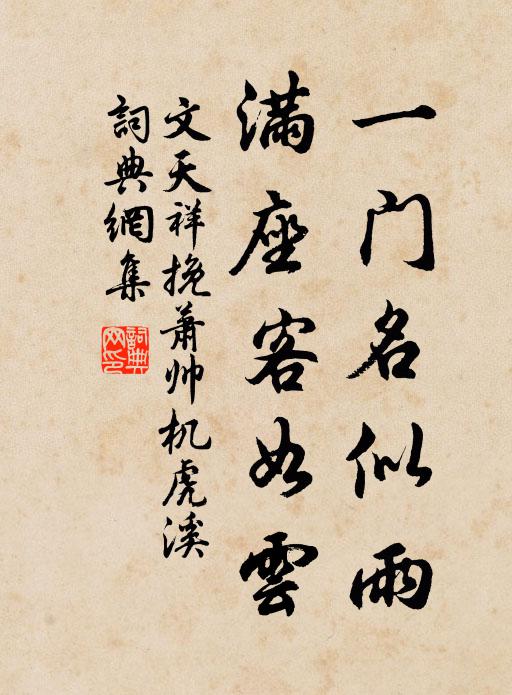 一门名似雨
滿座客如雲
文天祥挽萧帅机虎溪
詞典網集
詞典网印